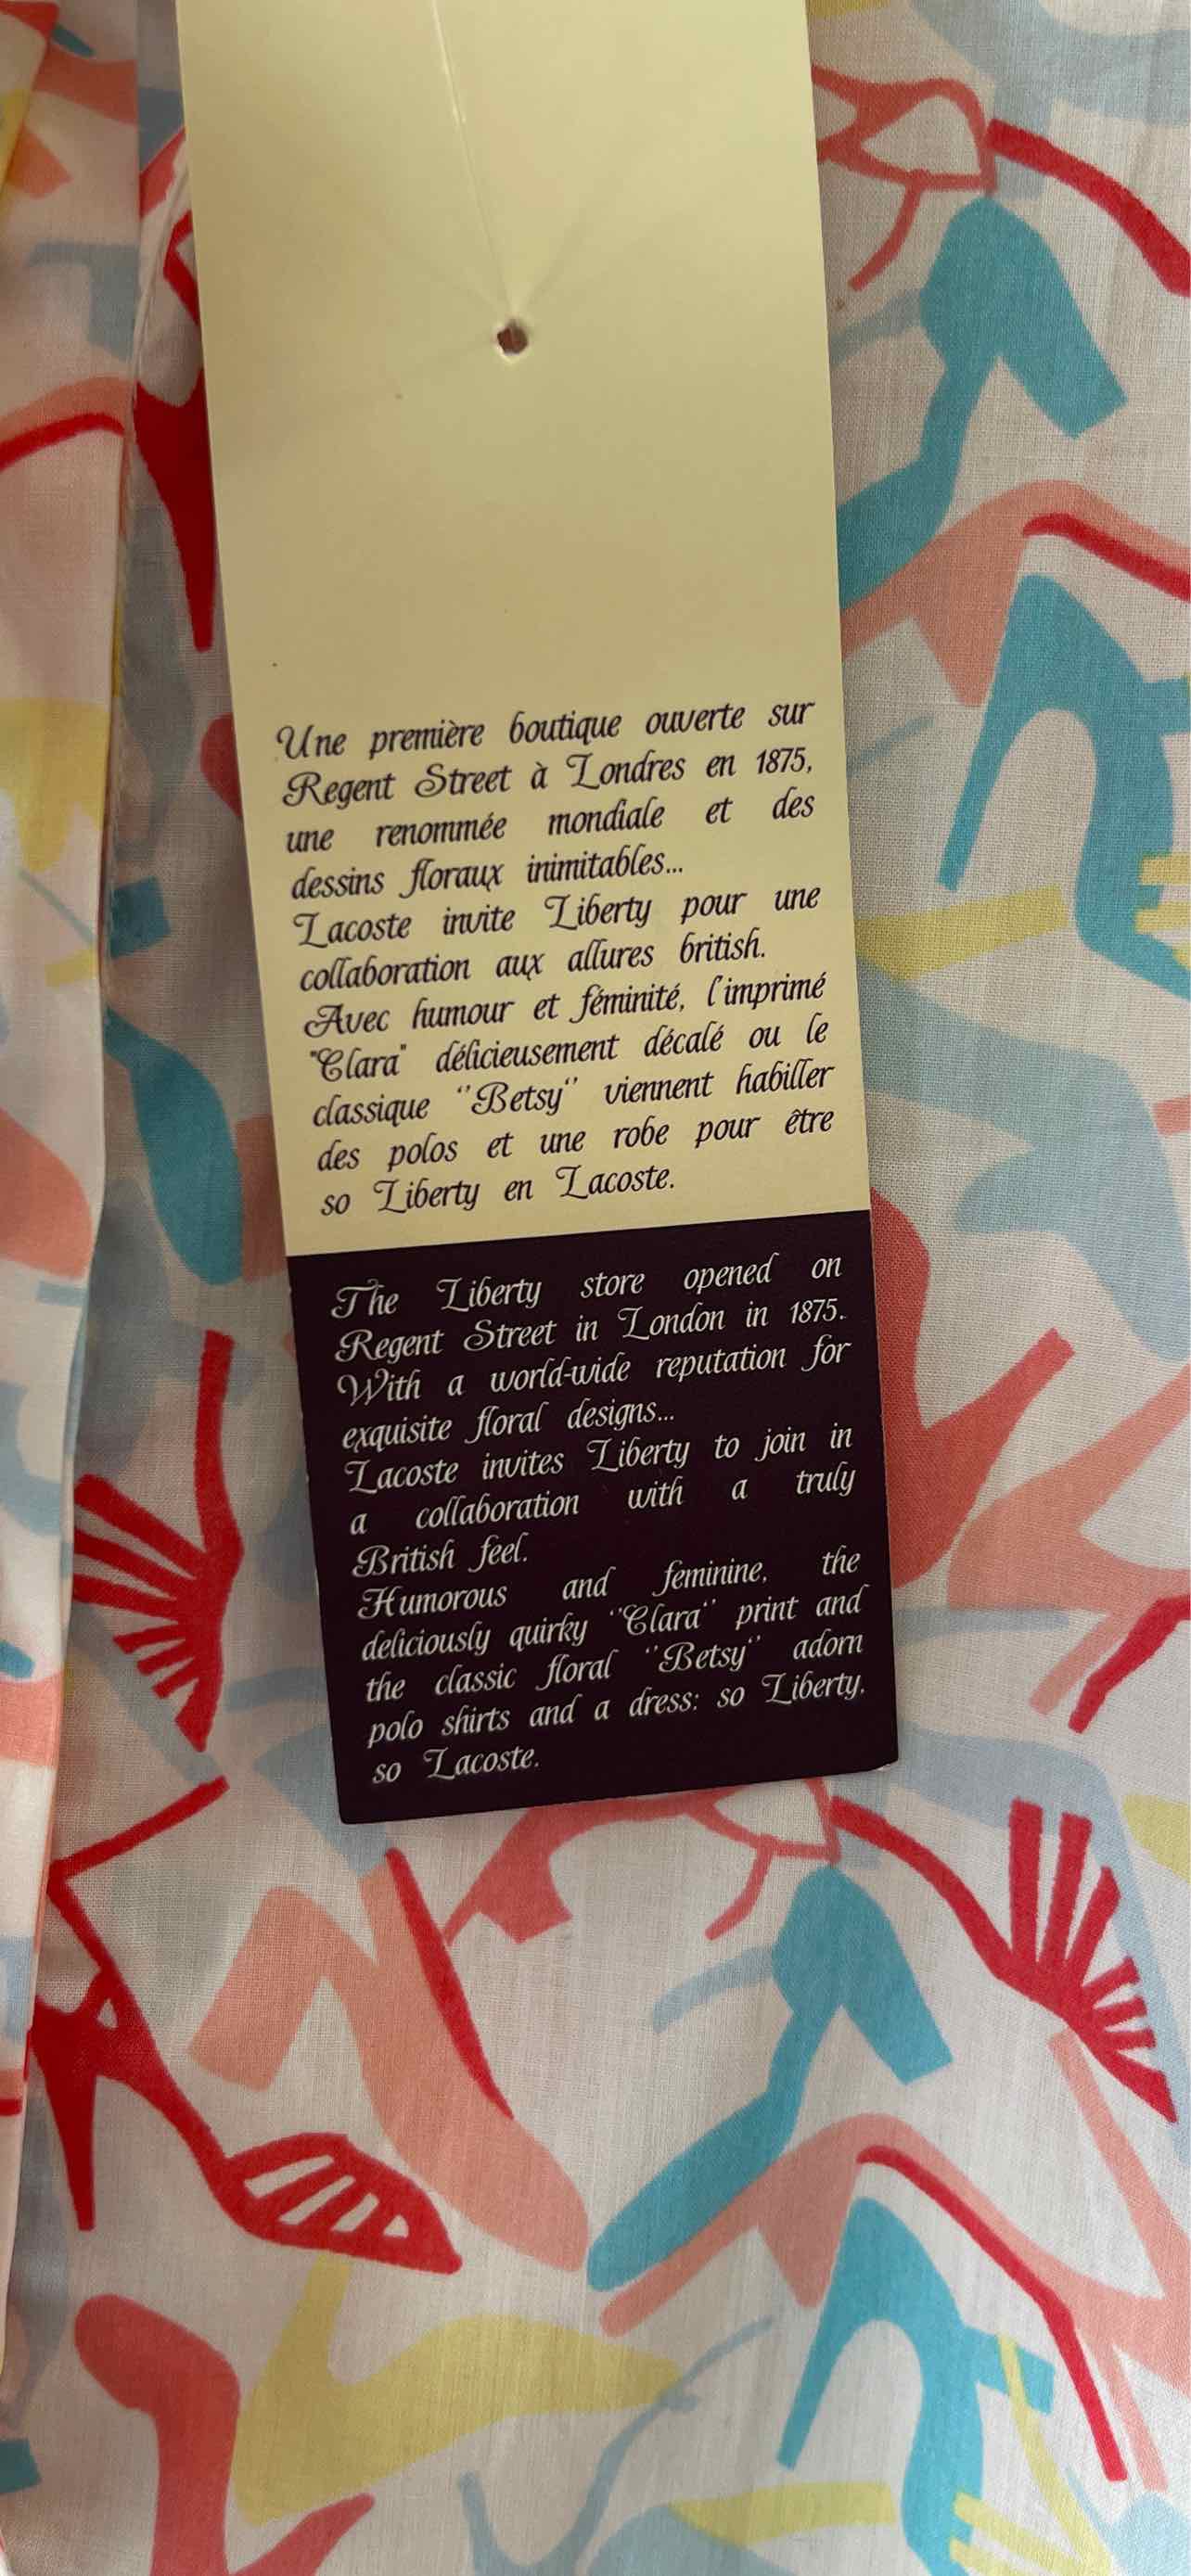 Une première boutique ouverte sur
Regent Street à Londres en 1875,
une renommée mondiale et des
dessins floraux inimitables...
Lacoste invite Liberty pour une
collaboration aux allures british.
Avec humour et féminité, l'imprimé
"Clara" délicieusement décalé ou le
classique "Betsy" viennent habiller
des polos et une robe pour être
so Liberty en Lacoste.
The Liberty store opened on
Regent Street in London in 1875.
With a world-wide reputation for
exquisite floral designs...
Lacoste invites Liberty to join in
a collaboration with a truly
British feel.
Humorous and feminine, the
deliciously quirky "Clara" print and
the classic floral "Betsy" adorn
polo shirts and a dress: so Liberty,
so Lacoste.